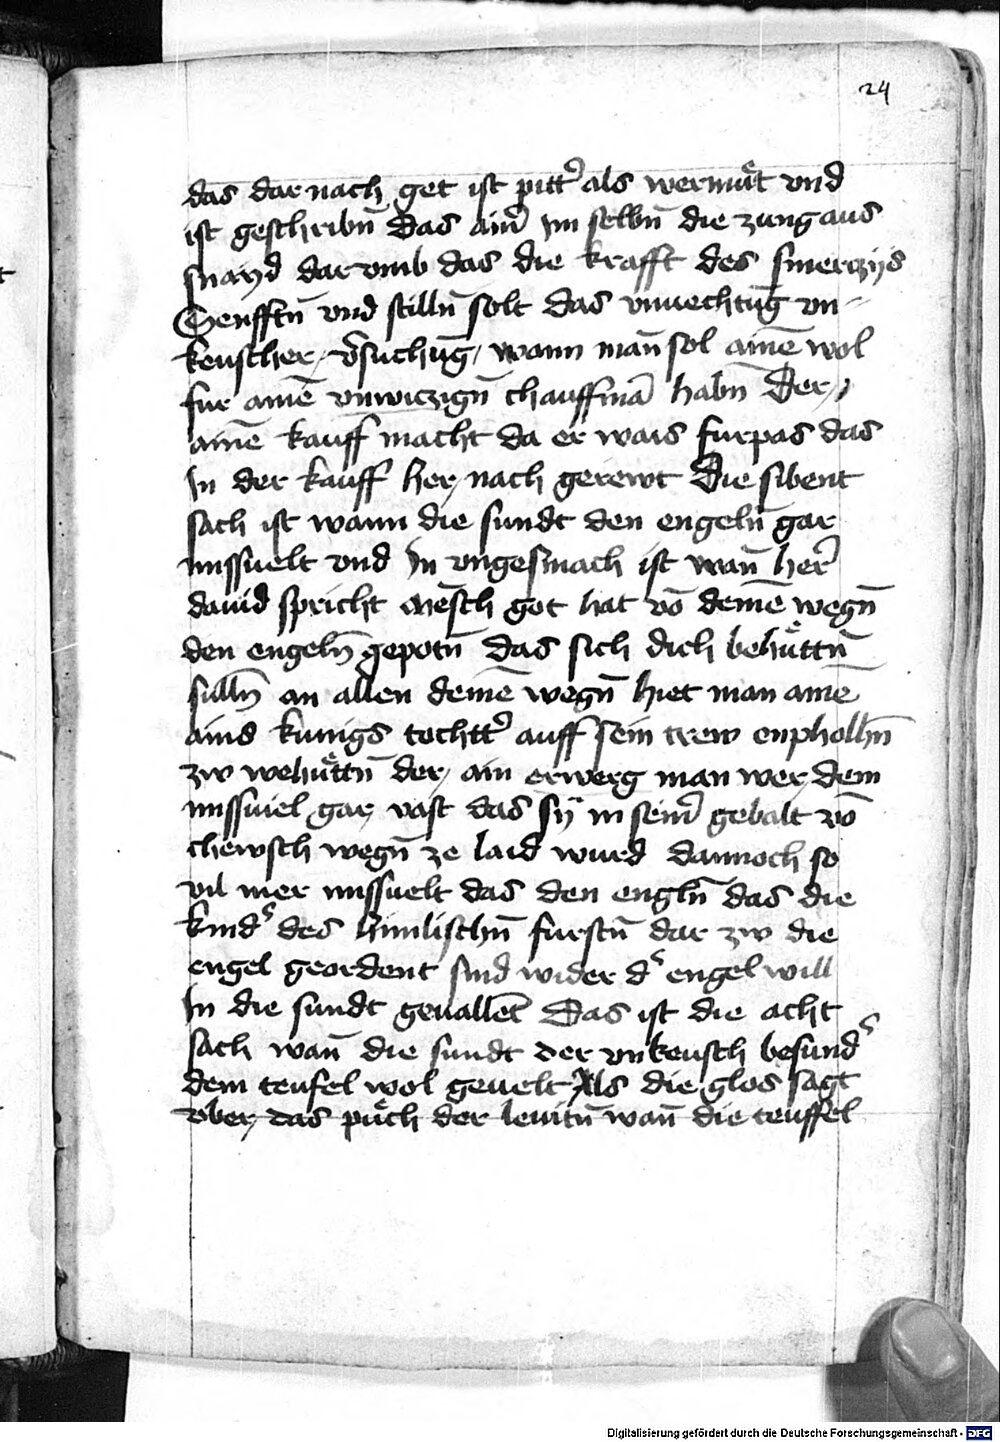 24
das dar nach get ist pitt᷑ als wermuͤt vnd
ist geschribn̄ Das ain᷑ im selbn̄ die zung aus
snayd dar vmb das die krafft des smerczns
Senfftn̄ vnd stilln̄ solt das vnuechtūg vn-
keuscher v᷑suchūg / wann man̄ sol amē wol
fur amē vnwiczign̄ chauffmā habn̄ Der
amē kauff macht da er wais furpas das
In der kauff her nach gerewt Die sibent
sach ist wann die sundt den engeln̄ gar
missuelt vnd In vngesmach ist wan̄ her᷑
dauid spricht mēsch got hat vō deinē wegn̄
den engeln̄ gepotn̄ das sich dich behuͤttn̄
sulln̄ an allen deinē wegn̄ hiet man amē
ains kunigs tochtt᷑ auff sein trew enpholhn̄
zw wehuͤttn̄ der ain erwerg man wer dem
missuiel gar vast das sÿ in sein᷑ gebalt vō
chewsch wegn̄ ze laid wurd dannoch so
vil mer missuelt das den engln̄ das die
kind᷑ des himlischn̄ furstn̄ dar zw die
engel geordent sind wider d᷑ engel will
In die sundt geuallēt Das ist die acht
sach wan̄ die sundt der vnkeusch besund᷑
dem teufel wol geuelt Als die glos sagt
vber das puͤch der leuitn̄ wan̄ die teuffel
Digitalisierung gefördert durch die Deutsche Forschungsgemeinschaft - DFG